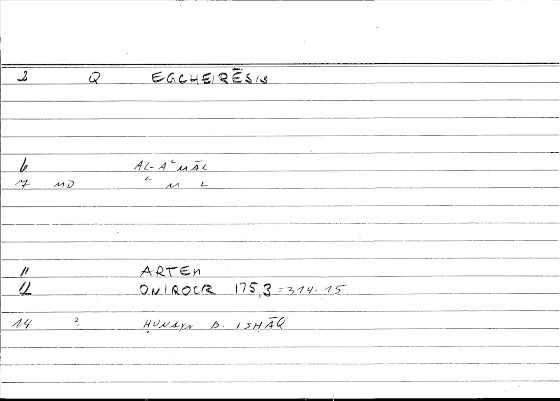 2 Q EGCHEIRĒSIS
6 AL-AʿMĀL
7 MD ʿ M L
11 ARTEM
12 ONIROCR 175,3 = 314.15
14 2 ḤUNAYN B. ISḤĀQ